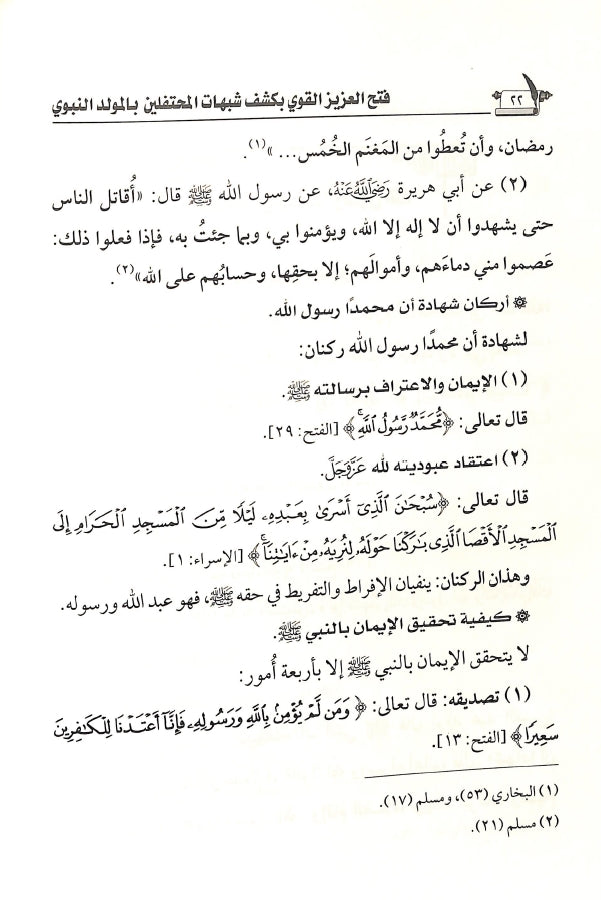 ٢٢
فتح العزيز القوي بكشف شبهات المحتفلين بالمولد النبوي
رمضان، وأن تُعطُوا من المَغنَم الخُمُس... »(١).
(٢) عن أبي هريرة رَضِيَ اللَّهُ عَنْهُ، عن رسول الله ﷺ قال: «أُقاتل الناس
حتى يشهدوا أن لا إله إلا الله، ويؤمنوا بي، وبما جئتُ به، فإذا فعلوا ذلك:
عَصموا مني دماءَهم، وأموالَهم؛ إلا بحقِها، وحسابُهم على الله»(٢).
۞ أركان شهادة أن محمدًا رسول الله.
لشهادة أن محمدًا رسول الله ركنان:
(١) الإيمان والاعتراف برسالته ﷺ.
قال تعالى: ﴿مُّحَمَّدٌ رَّسُولُ ٱللَّهِۚ﴾ [الفتح: ٢٩].
(٢) اعتقاد عبوديته لله عَزَّوَجَلَّ.
قال تعالى: ﴿سُبْحَٰنَ ٱلَّذِىٓ أَسْرَىٰ بِعَبْدِهِۦ لَيْلًا مِّنَ ٱلْمَسْجِدِ ٱلْحَرَامِ إِلَى
ٱلْمَسْجِدِ ٱلْأَقْصَا ٱلَّذِى بَٰرَكْنَا حَوْلَهُۥ لِنُرِيَهُۥ مِنْ ءَايَٰتِنَآۚ﴾ [الإسراء: ١].
وهذان الركنان: ينفيان الإفراط والتفريط في حقه ﷺ، فهو عبد الله ورسوله.
۞ كيفية تحقيق الإيمان بالنبي ﷺ.
لا يتحقق الإيمان بالنبي ﷺ إلا بأربعة أُمور:
(١) تصديقه: قال تعالى: ﴿ وَمَن لَّمْ يُؤْمِنۢ بِٱللَّهِ وَرَسُولِهِۦ فَإِنَّآ أَعْتَدْنَا لِلْكَٰفِرِينَ
سَعِيرًا﴾ [الفتح: ١٣].
(١) البخاري (٥٣)، ومسلم (١٧).
(٢) مسلم (٢١).